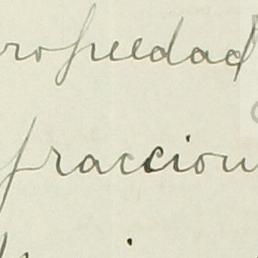 ropiedad
fraccion